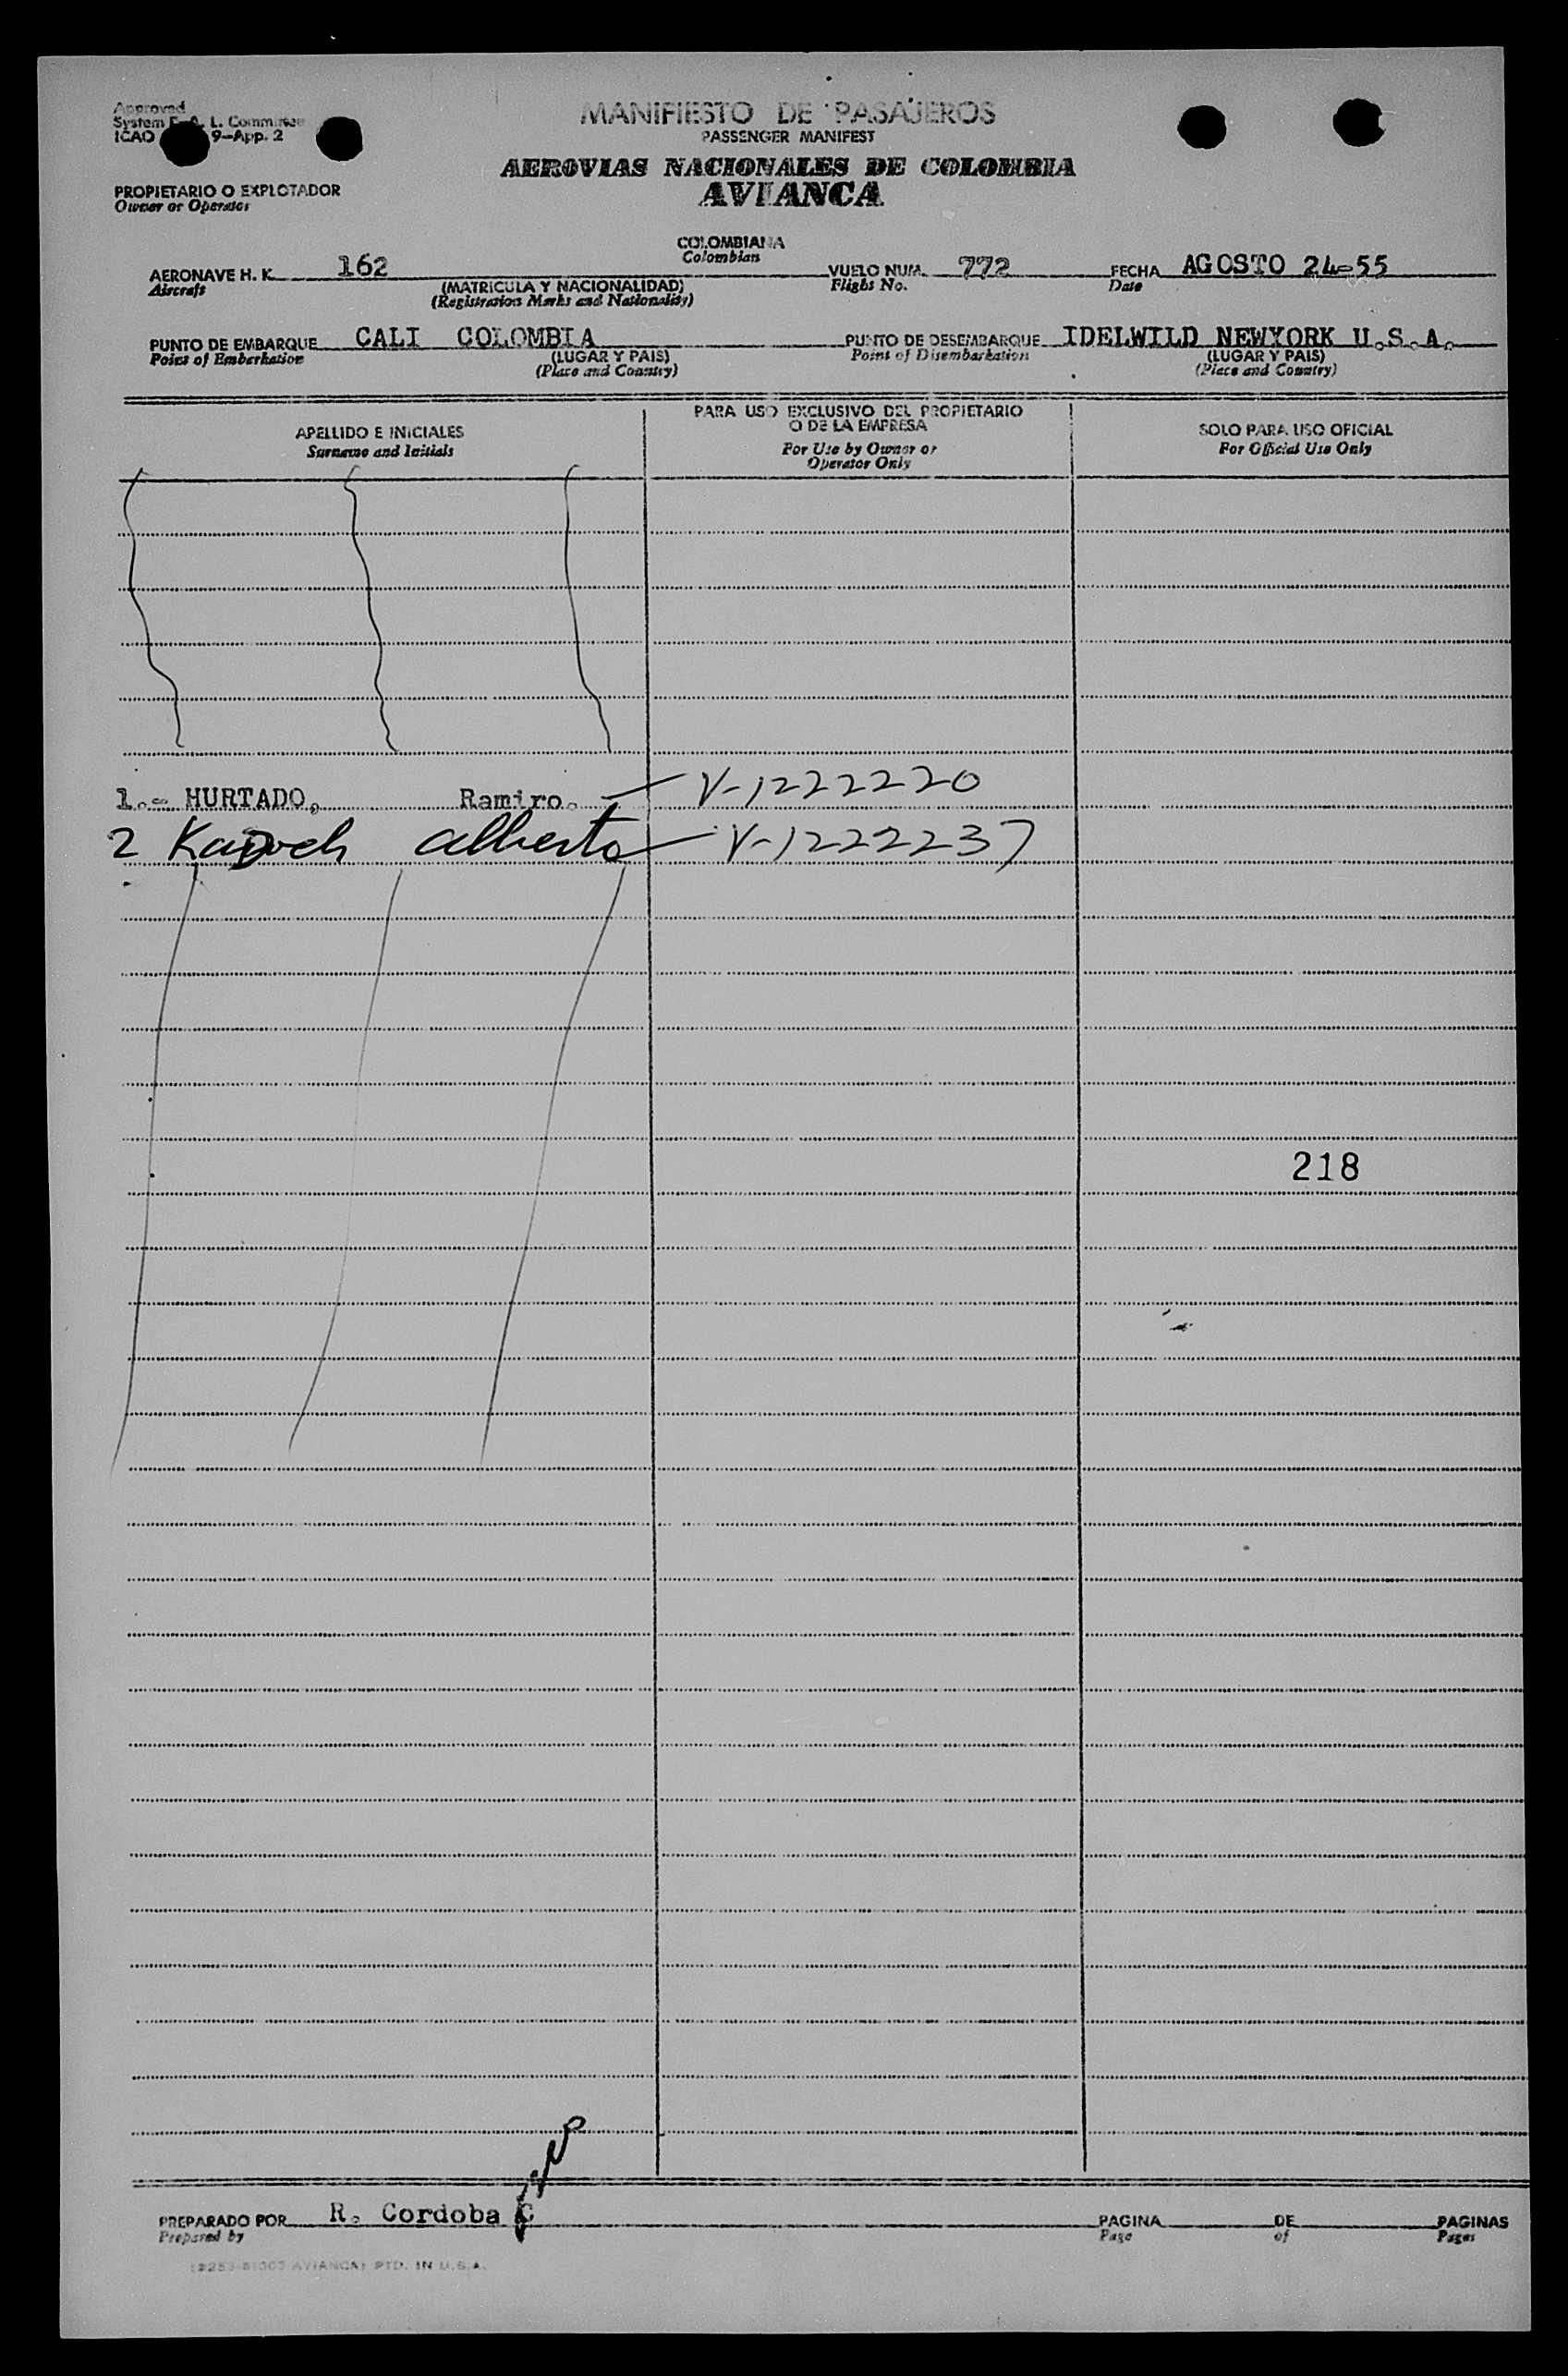 Approved
System F. A. L. Committee
ICAO 9-App. 2
MANIFIESTO DE PASAJEROS
PASSENGER MANIFEST
AEROVIAS NACIONALES DE COLOMBIA
AVIANCA
PROPIETARIO O EXPLOTADOR
Owner or Operator
COLOMBIANA
Colombian
AERONAVE H. K. 162 VUELO NUM. 772 FECHA AGOSTO 24-55
Aircraft (MATRICULA Y NACIONALIDAD) Flight No. Date
(Registration Marks and Nationality)
PUNTO DE EMBARQUE CALI COLOMBIA PUNTO DE DESEMBARQUE IDELWILD NEWYORK U.S.A.
Point of Embarkation (LUGAR Y PAIS) Point of Disembarkation (LUGAR Y PAIS)
(Place and Country) (Place and Country)
APELLIDO E INICIALES
Surname and Initials
PARA USO EXCLUSIVO DEL PROPIETARIO
O DE LA EMPRESA
For Use by Owner or
Operator Only
SOLO PARA USO OFICIAL
For Official Use Only
1.- HURTADO, Ramiro. V-1222220
2 alberto V-1222237
218
PREPARADO POR R. Cordoba C PAGINA DE PAGINAS
Prepared by Page of Pages
AVIANCA) PTD. IN U.S.A.